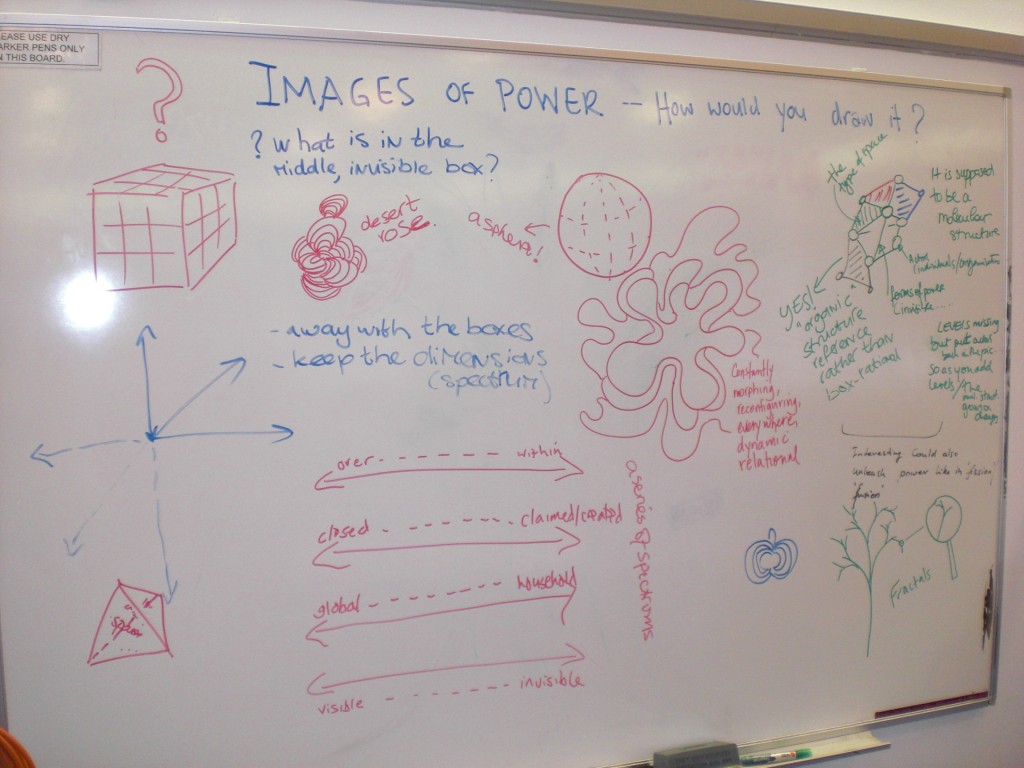 EASE USE DRY
ARKER PENS ONLY
N THIS BOARD.
?
IMAGES OF POWER -- How would you draw it?
? What is in the
middle, invisible box?
desert
rose.
a sphere!
the type of space
It is supposed
to be a
molecular
structure
individuals/organisations
forms of power
invisible....
YES!
"organic"
structure
reference
rather than
box-rational
LEVELS missing
so as you add
levels/The
- away with the boxes
- keep the dimensions
(spectrum)
Constantly
morphing,
reconfiguring,
everywhere,
dynamic
relational
over within
closed claimed/created
global household
visible invisible
a series of spectrums
Interesting could also
unleash power like in 'fission'
'fusion'
Fractals